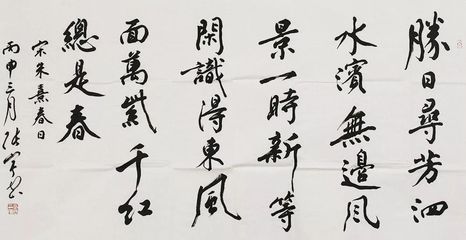 勝日尋芳泗
水濱無邊风
景一時新等
閑識得東風
面萬紫千红
總是春
宋朱熹春日
丙申三月